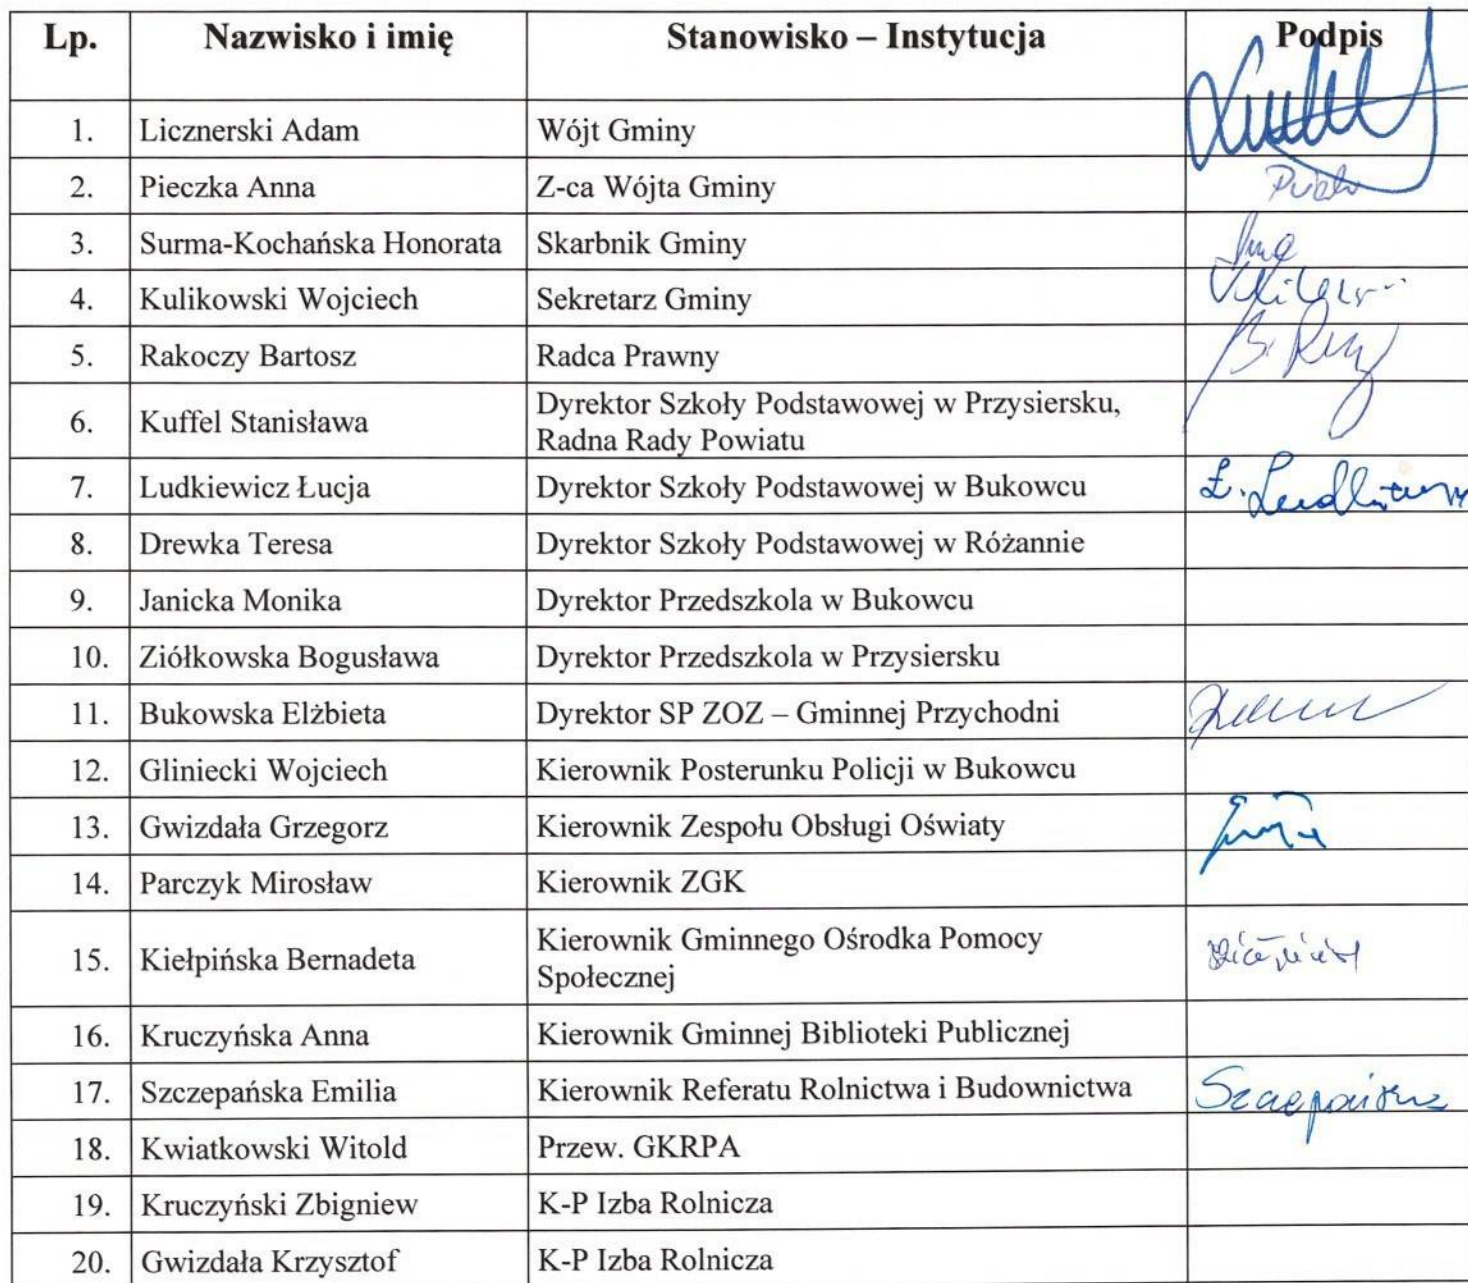 Lp. Nazwisko i imię Stanowisko – Instytucja Podpis
1. Licznerski Adam Wójt Gminy
2. Pieczka Anna Z-ca Wójta Gminy
3. Surma-Kochańska Honorata Skarbnik Gminy
4. Kulikowski Wojciech Sekretarz Gminy
5. Rakoczy Bartosz Radca Prawny
6. Kuffel Stanisława Dyrektor Szkoły Podstawowej w Przysiersku,
Radna Rady Powiatu
7. Ludkiewicz Łucja Dyrektor Szkoły Podstawowej w Bukowcu
8. Drewka Teresa Dyrektor Szkoły Podstawowej w Różannie
9. Janicka Monika Dyrektor Przedszkola w Bukowcu
10. Ziółkowska Bogusława Dyrektor Przedszkola w Przysiersku
11. Bukowska Elżbieta Dyrektor SP ZOZ – Gminnej Przychodni
12. Gliniecki Wojciech Kierownik Posterunku Policji w Bukowcu
13. Gwizdała Grzegorz Kierownik Zespołu Obsługi Oświaty
14. Parczyk Mirosław Kierownik ZGK
15. Kiełpińska Bernadeta Kierownik Gminnego Ośrodka Pomocy
Społecznej
16. Kruczyńska Anna Kierownik Gminnej Biblioteki Publicznej
17. Szczepańska Emilia Kierownik Referatu Rolnictwa i Budownictwa Szczepańska
18. Kwiatkowski Witold Przew. GKRPA
19. Kruczyński Zbigniew K-P Izba Rolnicza
20. Gwizdała Krzysztof K-P Izba Rolnicza